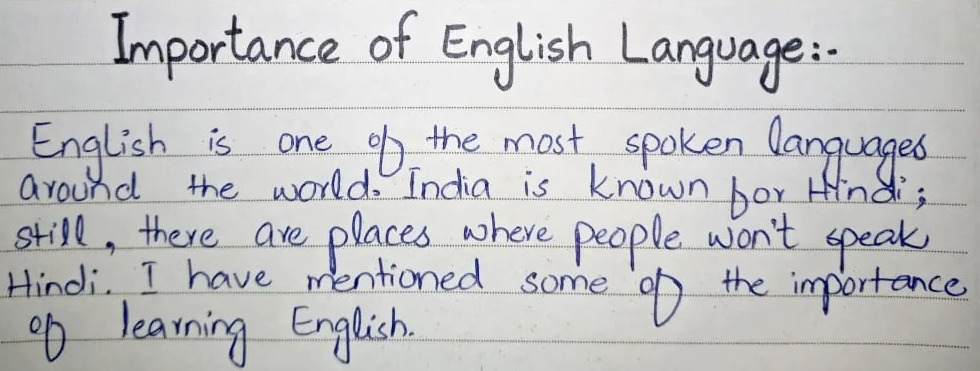 Importance of English Language:-
English is one of the most spoken languages
around the world. India is known for Hindi;
still, there are places where people won't speak
Hindi. I have mentioned some of the importance
of learning English.